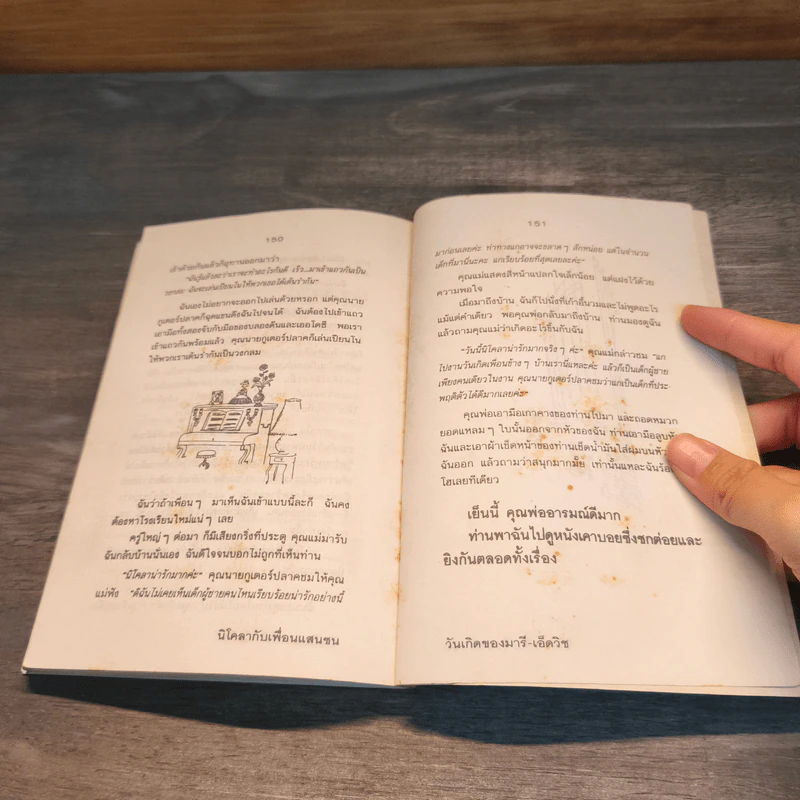 150
เจ้าด้วยกันแล้วก็อุทานออกมาว่า
"ฉันรู้แล้วละว่าเราจะทำอะไรกันดี เร็ว...มาเข้าแถวกันเป็น
วงกลม ฉันจะเล่นเปียนโนให้พวกเธอได้เต้นรำกัน"
ฉันเองไม่อยากจะออกไปเล่นด้วยหรอก แต่คุณนาย
กูเตอร์ปลาคก็ฉุดแขนดึงฉันไปจนได้ ฉันต้องไปเข้าแถว
เอามือทั้งสองจับกับมือของบลองดีนและเออโดซี พอเรา
เข้าแถวกันพร้อมแล้ว คุณนายกูเตอร์ปลาคก็เล่นเปียนโน
ให้พวกเราเต้นรำกันเป็นวงกลม
ฉันว่าถ้าเพื่อนๆ มาเห็นฉันเข้าแบบนี้ละก็ ฉันคง
ต้องหาโรงเรียนใหม่แน่ๆ เลย
ครู่ใหญ่ๆ ต่อมา ก็มีเสียงกริ่งที่ประตู คุณแม่มารับ
ฉันกลับบ้านนั่นเอง ฉันดีใจจนบอกไม่ถูกที่เห็นท่าน
"นิโคลาน่ารักมากค่ะ" คุณนายกูเตอร์ปลาคชมให้คุณ
แม่ฟัง "ดิฉันไม่เคยเห็นเด็กผู้ชายคนไหนเรียบร้อยน่ารักอย่างนี้
นิโคลากับเพื่อนแสนซน
151
มาก่อนเลยค่ะ ท่าทางแกอาจจะขลาดๆ สักหน่อย แต่ในจำนวน
เด็กที่มานี่นะคะ แกเรียบร้อยที่สุดเลยละค่ะ"
คุณแม่แสดงสีหน้าแปลกใจเล็กน้อย แต่แฝงไว้ด้วย
ความพอใจ
เมื่อมาถึงบ้าน ฉันก็ไปนั่งที่เก้าอี้นวมและไม่พูดอะไร
แม้แต่คำเดียว พอคุณพ่อกลับมาถึงบ้าน ท่านมองดูฉัน
แล้วถามคุณแม่ว่าเกิดอะไรขึ้นกับฉัน
"วันนี้นิโคลาน่ารักมากจริงๆ ค่ะ" คุณแม่กล่าวชม "แก
ไปงานวันเกิดเพื่อนข้างๆ บ้านเรานี่แหละค่ะ แล้วก็เป็นเด็กผู้ชาย
เพียงคนเดียวในงาน คุณนายกูเตอร์ปลาคชมว่าแกเป็นเด็กที่ประ
พฤติตัวได้ดีมากเลยค่ะ"
คุณพ่อเอามือเกาคางของท่านไปมา และถอดหมวก
ยอดแหลมๆ ใบนั้นออกจากหัวของฉัน ท่านเอามือลูบหัว
ฉันและเอาผ้าเช็ดหน้าของท่านเช็ดน้ำมันใส่ผมบนหัว
ฉันออก แล้วถามว่าสนุกมากมั้ย เท่านั้นแหละฉันร้อง
โฮเลยทีเดียว
เย็นนี้ คุณพ่ออารมณ์ดีมาก
ท่านพาฉันไปดูหนังเคาบอยซึ่งชกต่อยและ
ยิงกันตลอดทั้งเรื่อง
วันเกิดของมารี-เอ็ดวิช